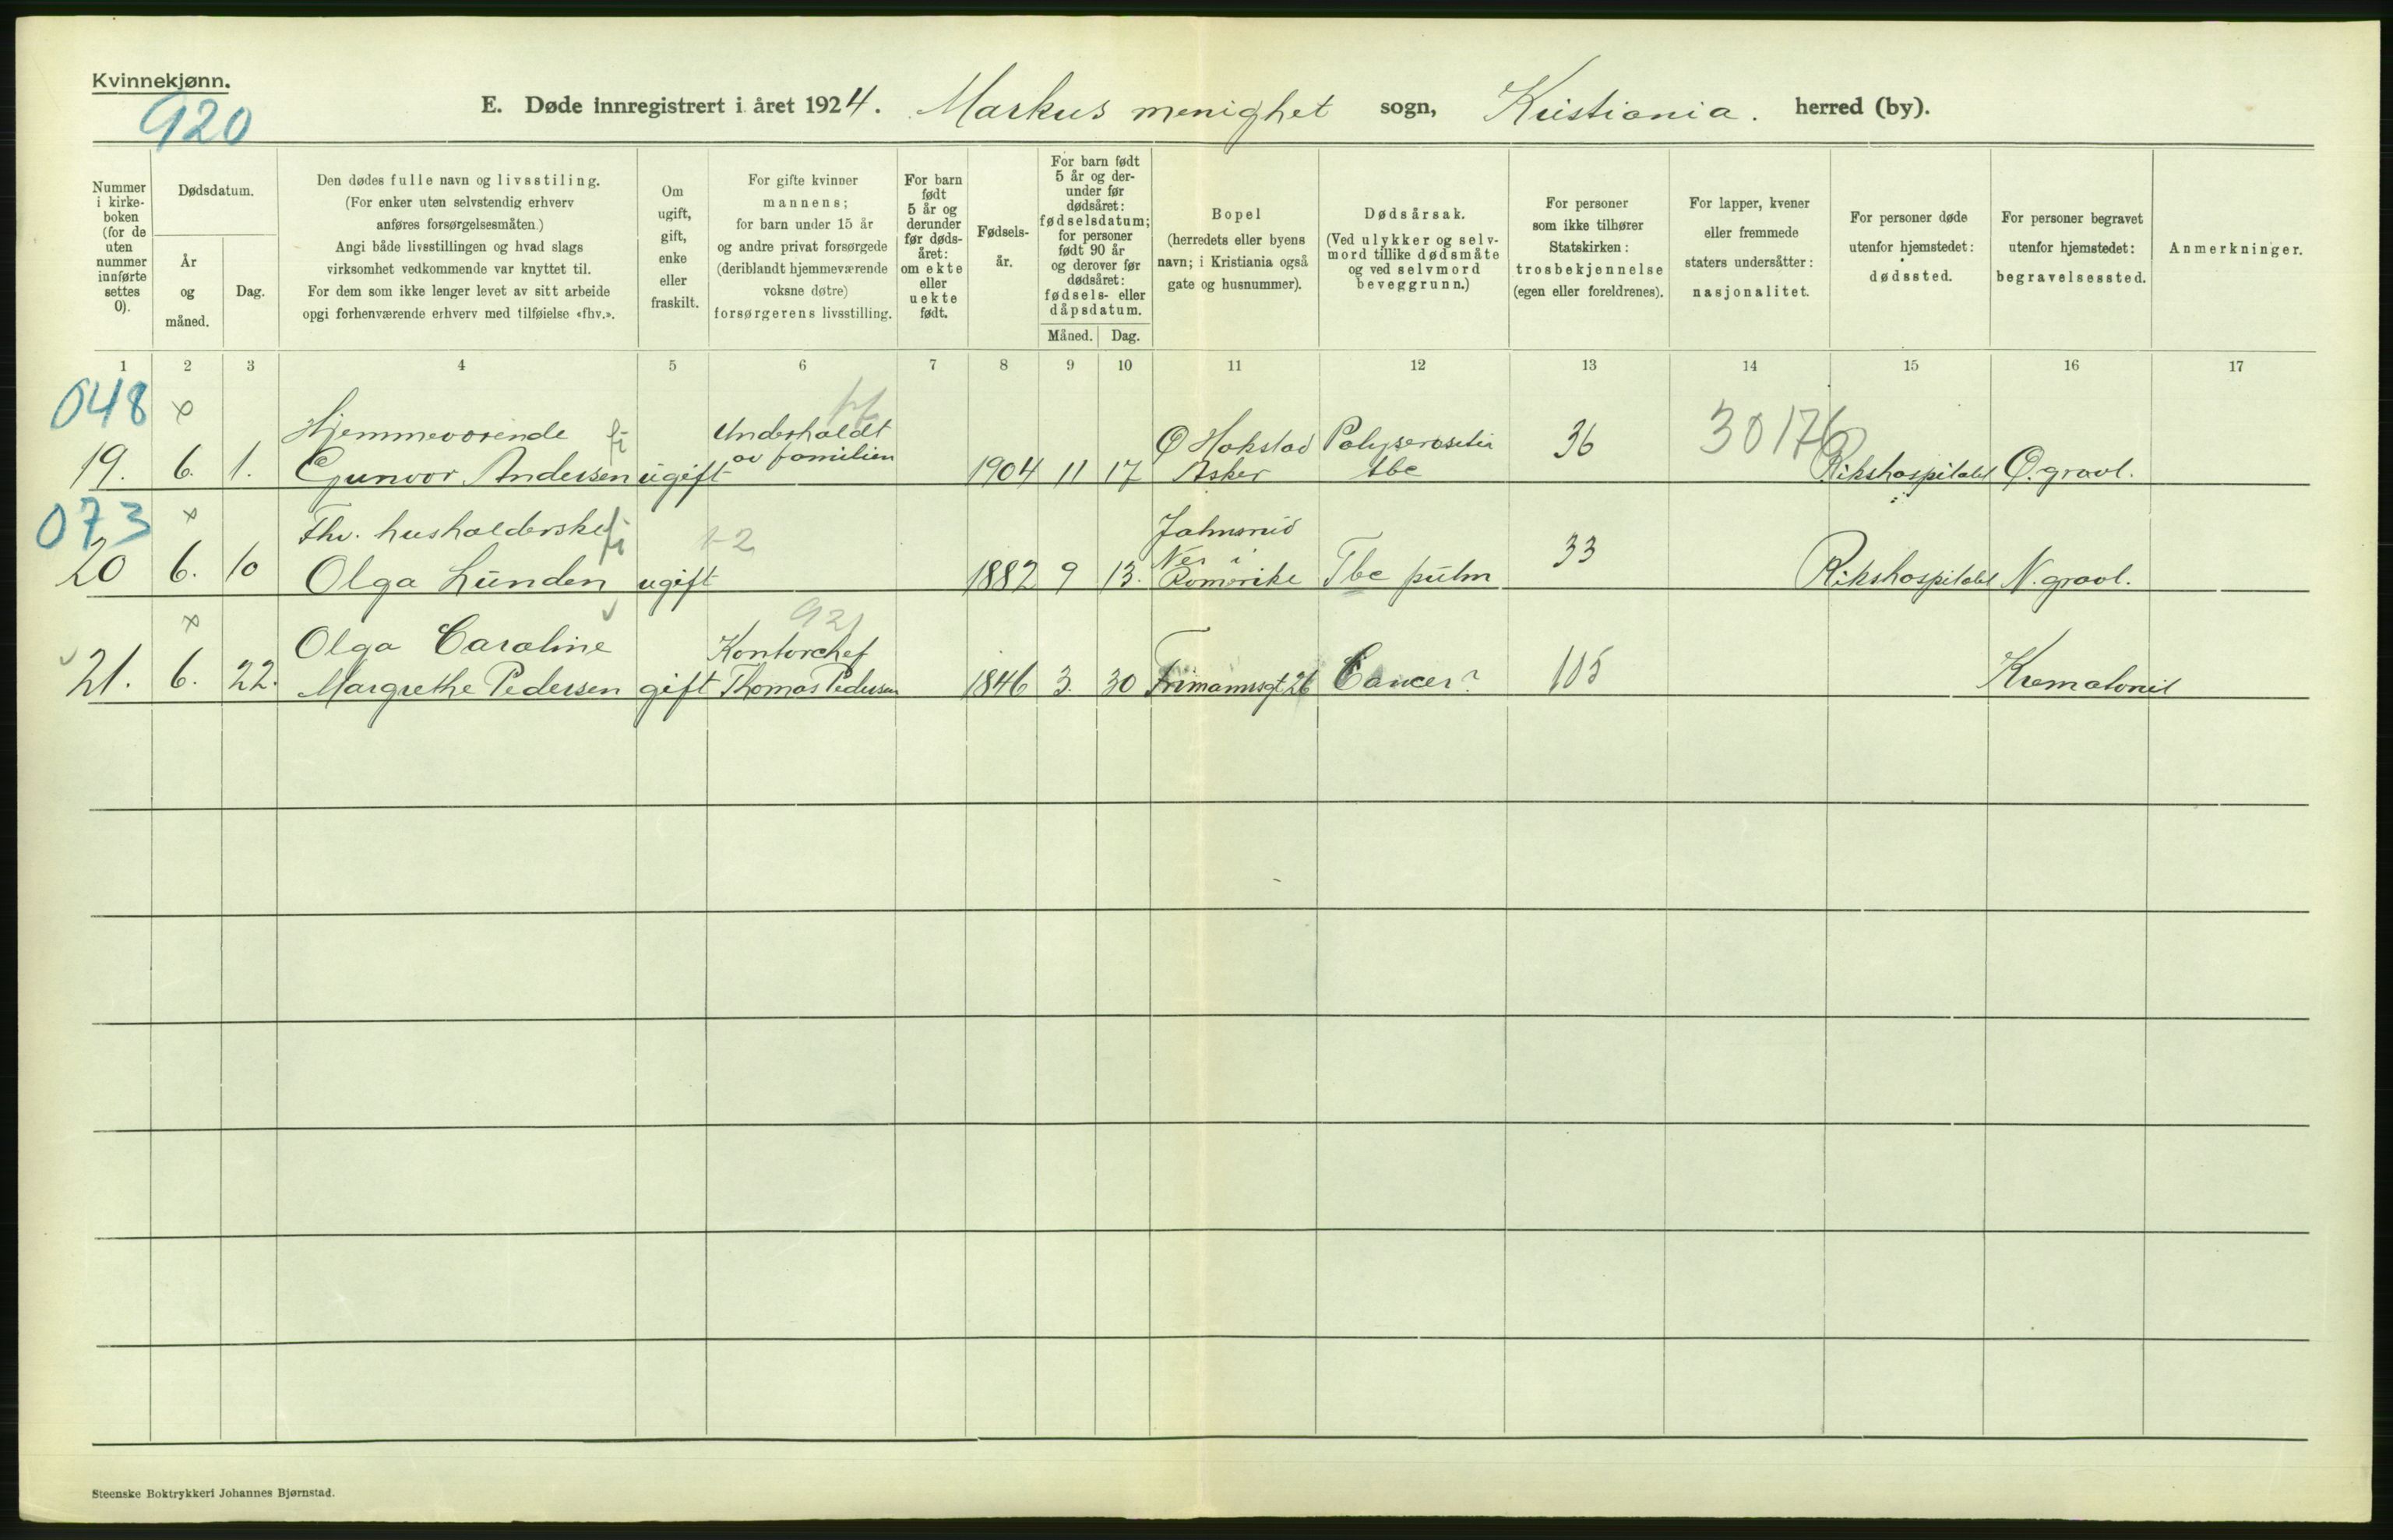 Kvinnekjønn.
920
E. Døde innregistrert i året 1924. Markus menighet sogn, Kristiania. herred (by).
Nummer i kirke-boken (for de uten nummer innførte settes 0).
Dødsdatum.
År og måned.
Dag.
Den dødes fulle navn og livsstiling.
(For enker uten selvstendig erhverv
anføres forsørgelsesmåten.)
Angi både livsstillingen og hvad slags
virksomhet vedkommende var knyttet til.
For dem som ikke lenger levet av sitt arbeide
opgi forhenværende erhverv med tilføielse «fhv.».
Om ugift, gift, enke eller fraskilt.
For gifte kvinner
mannens;
for barn under 15 år
og andre privat forsørgede
(deriblandt hjemmeværende
voksne døtre)
forsørgerens livsstilling.
For barn født 5 år og derunder før døds-året: om ekte eller uekte født.
Fødsels-år.
For barn født
5 år og der-
under før
dødsåret:
fødselsdatum;
for personer
født 90 år
og derover før
dødsåret:
fødsels- eller
dåpsdatum.
Måned. Dag.
Bopel
(herredets eller byens
navn; i Kristiania også
gate og husnummer).
Dødsårsak.
(Ved ulykker og selv-
mord tillike dødsmåte
og ved selvmord
beveggrunn.)
For personer
som ikke tilhører
Statskirken:
trosbekjennelse
(egen eller foreldrenes).
For lapper, kvener
eller fremmede
staters undersåtter:
nasjonalitet.
For personer døde
utenfor hjemstedet:
dødssted.
For personer begravet
utenfor hjemstedet:
begravelsessted.
Anmerkninger.
1 2 3 4 5 6 7 8 9 10 11 12 13 14 15 16 17
048 x
Hjemmeværende Underholdt Ø Hakstad Polyserositis 36 30176
19. 6. 1. Gunvor Andersen ugift av familien 1904 11 17 Asker tbc Rikshospitalet Ø. gravl.
073 x
Fhv. husholderske
20 6. 10 Olga Lunden ugift 1882 9 13. Nes i Romerike Tbc pulm 33 Rikshospitalet N. gravl.
x
Olga Caroline Kontorchef 921
21. 6. 22. Margrethe Pedersen gift Thomas Pedersen 1846 3. 30 Frimannsgt 26 Cancer? 105 Krematoriet
Steenske Boktrykkeri Johannes Bjørnstad.